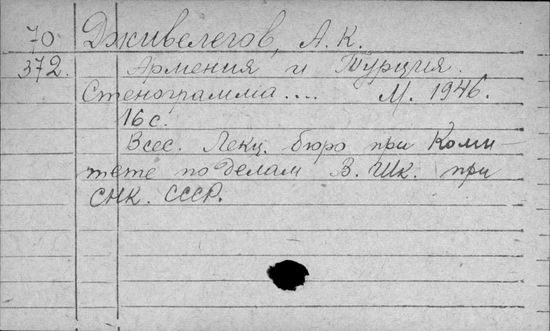 70 Дживелегов, А. К.
372. Армения и Турция.
Стенограмма.... М. 1946.
16 с.
Всес. Лекц. бюро при Коми-
тете по делам В. Шк. при
СНК. СССР.